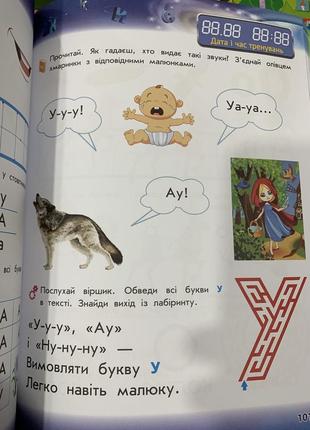 88.88 88:88
Дата і час тренувань
Прочитай. Як гадаєш, хто видає такі звуки? З'єднай олівцем
хмаринки з відповідними малюнками.
У-у-у!
Уа-уа...
Ау!
Послухай віршик. Обведи всі букви У
в тексті. Знайди вихід із лабіринту.
«У-у-у», «Ау»
і «Ну-ну-ну» —
Вимовляти букву У
Легко навіть малюку.